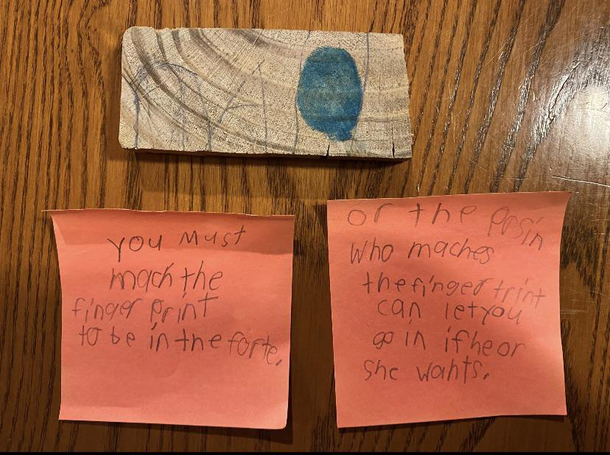 you Must
mach the
finger print
to be in the forte.
or the Prsin
Who maches
the finger trint
can let you
go in if he or
she wants.